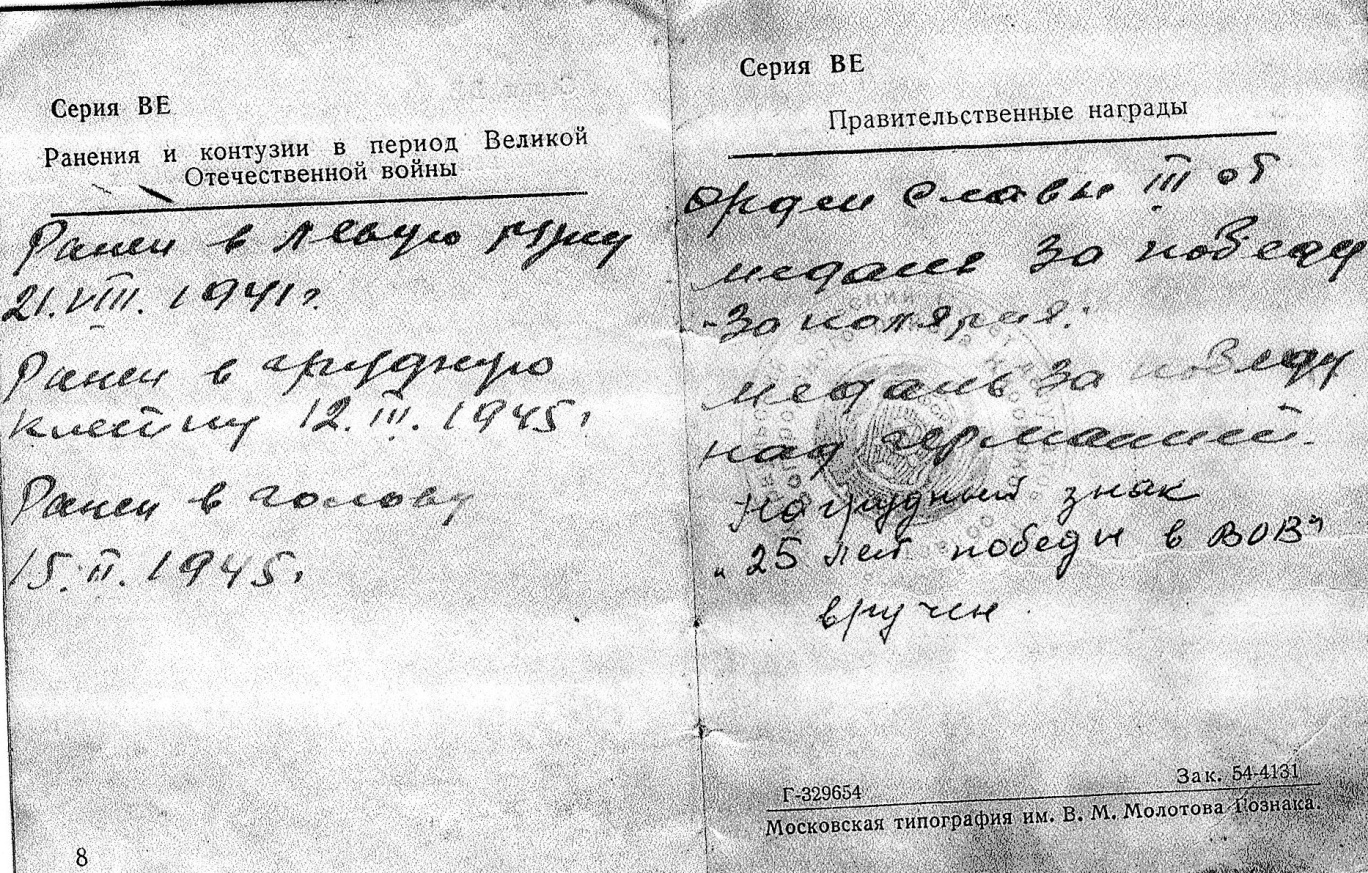 Серия ВЕ
Ранения и контузии в период Великой
Отечественной войны
Ранен в левую руку
21.VIII. 1941г
Ранен в грудную
клетку 12.III. 1945г
Ранен в голову
15.II. 1945г
8
Серия ВЕ
Правительственные награды
Орден Славы III ст
медаль За победу
медаль За победу
над германией.
Нагрудный знак
„25 лет победы в ВОВ"
вручен
Г-329654
Зак. 54-4131
Московская типография им. В. М. Молотова Гознака.